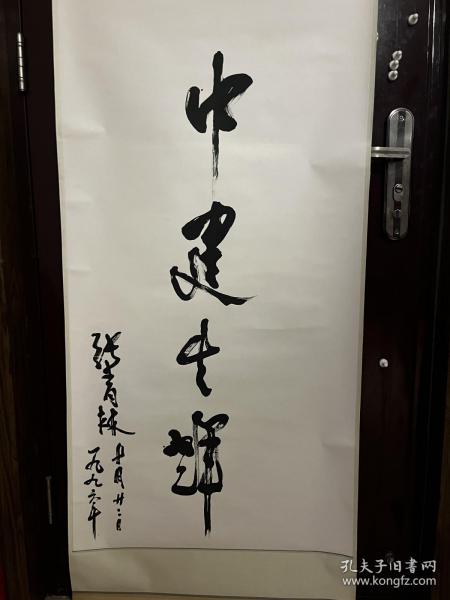 中建生辉
张青林
九月廿二日
一九九六年
孔夫子旧书网
www.kongfz.com